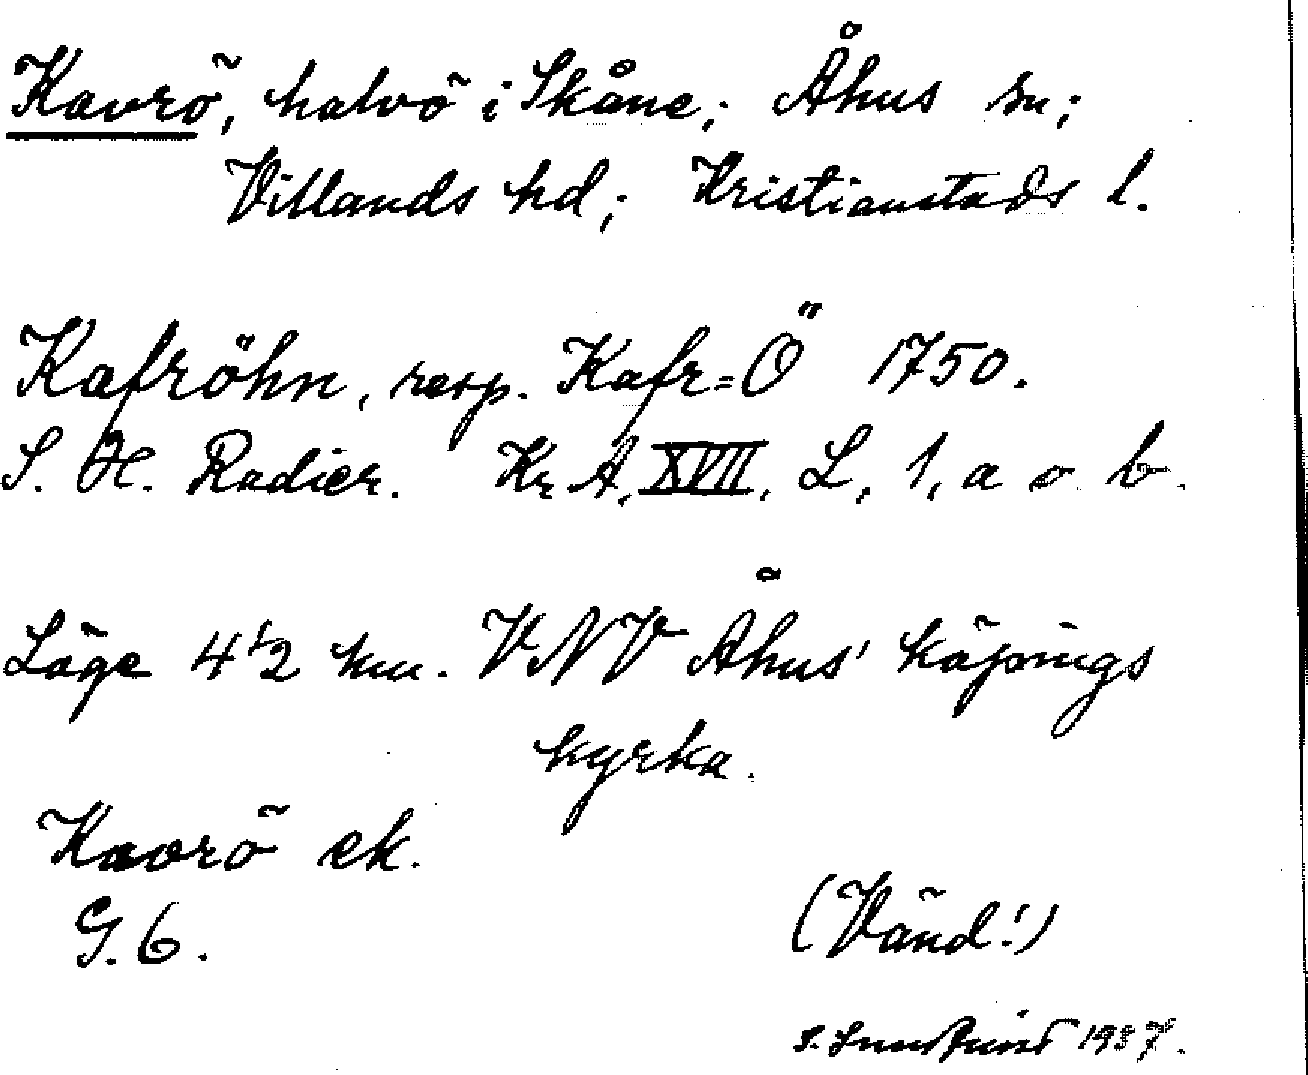 Kavrö, halvö i Skåne; Åhus sn;
Villands hd; Kristianstads l.
Kafröhn, resp. Kafr=Ö 1750.
S. H. Radier. Kr A, XVII, L, 1, a o b.
Läge 4 1/2 km. VNV Åhus' köpings
kyrka.
Kavrö ek.
G. 6.
(Vänd!)
1937.